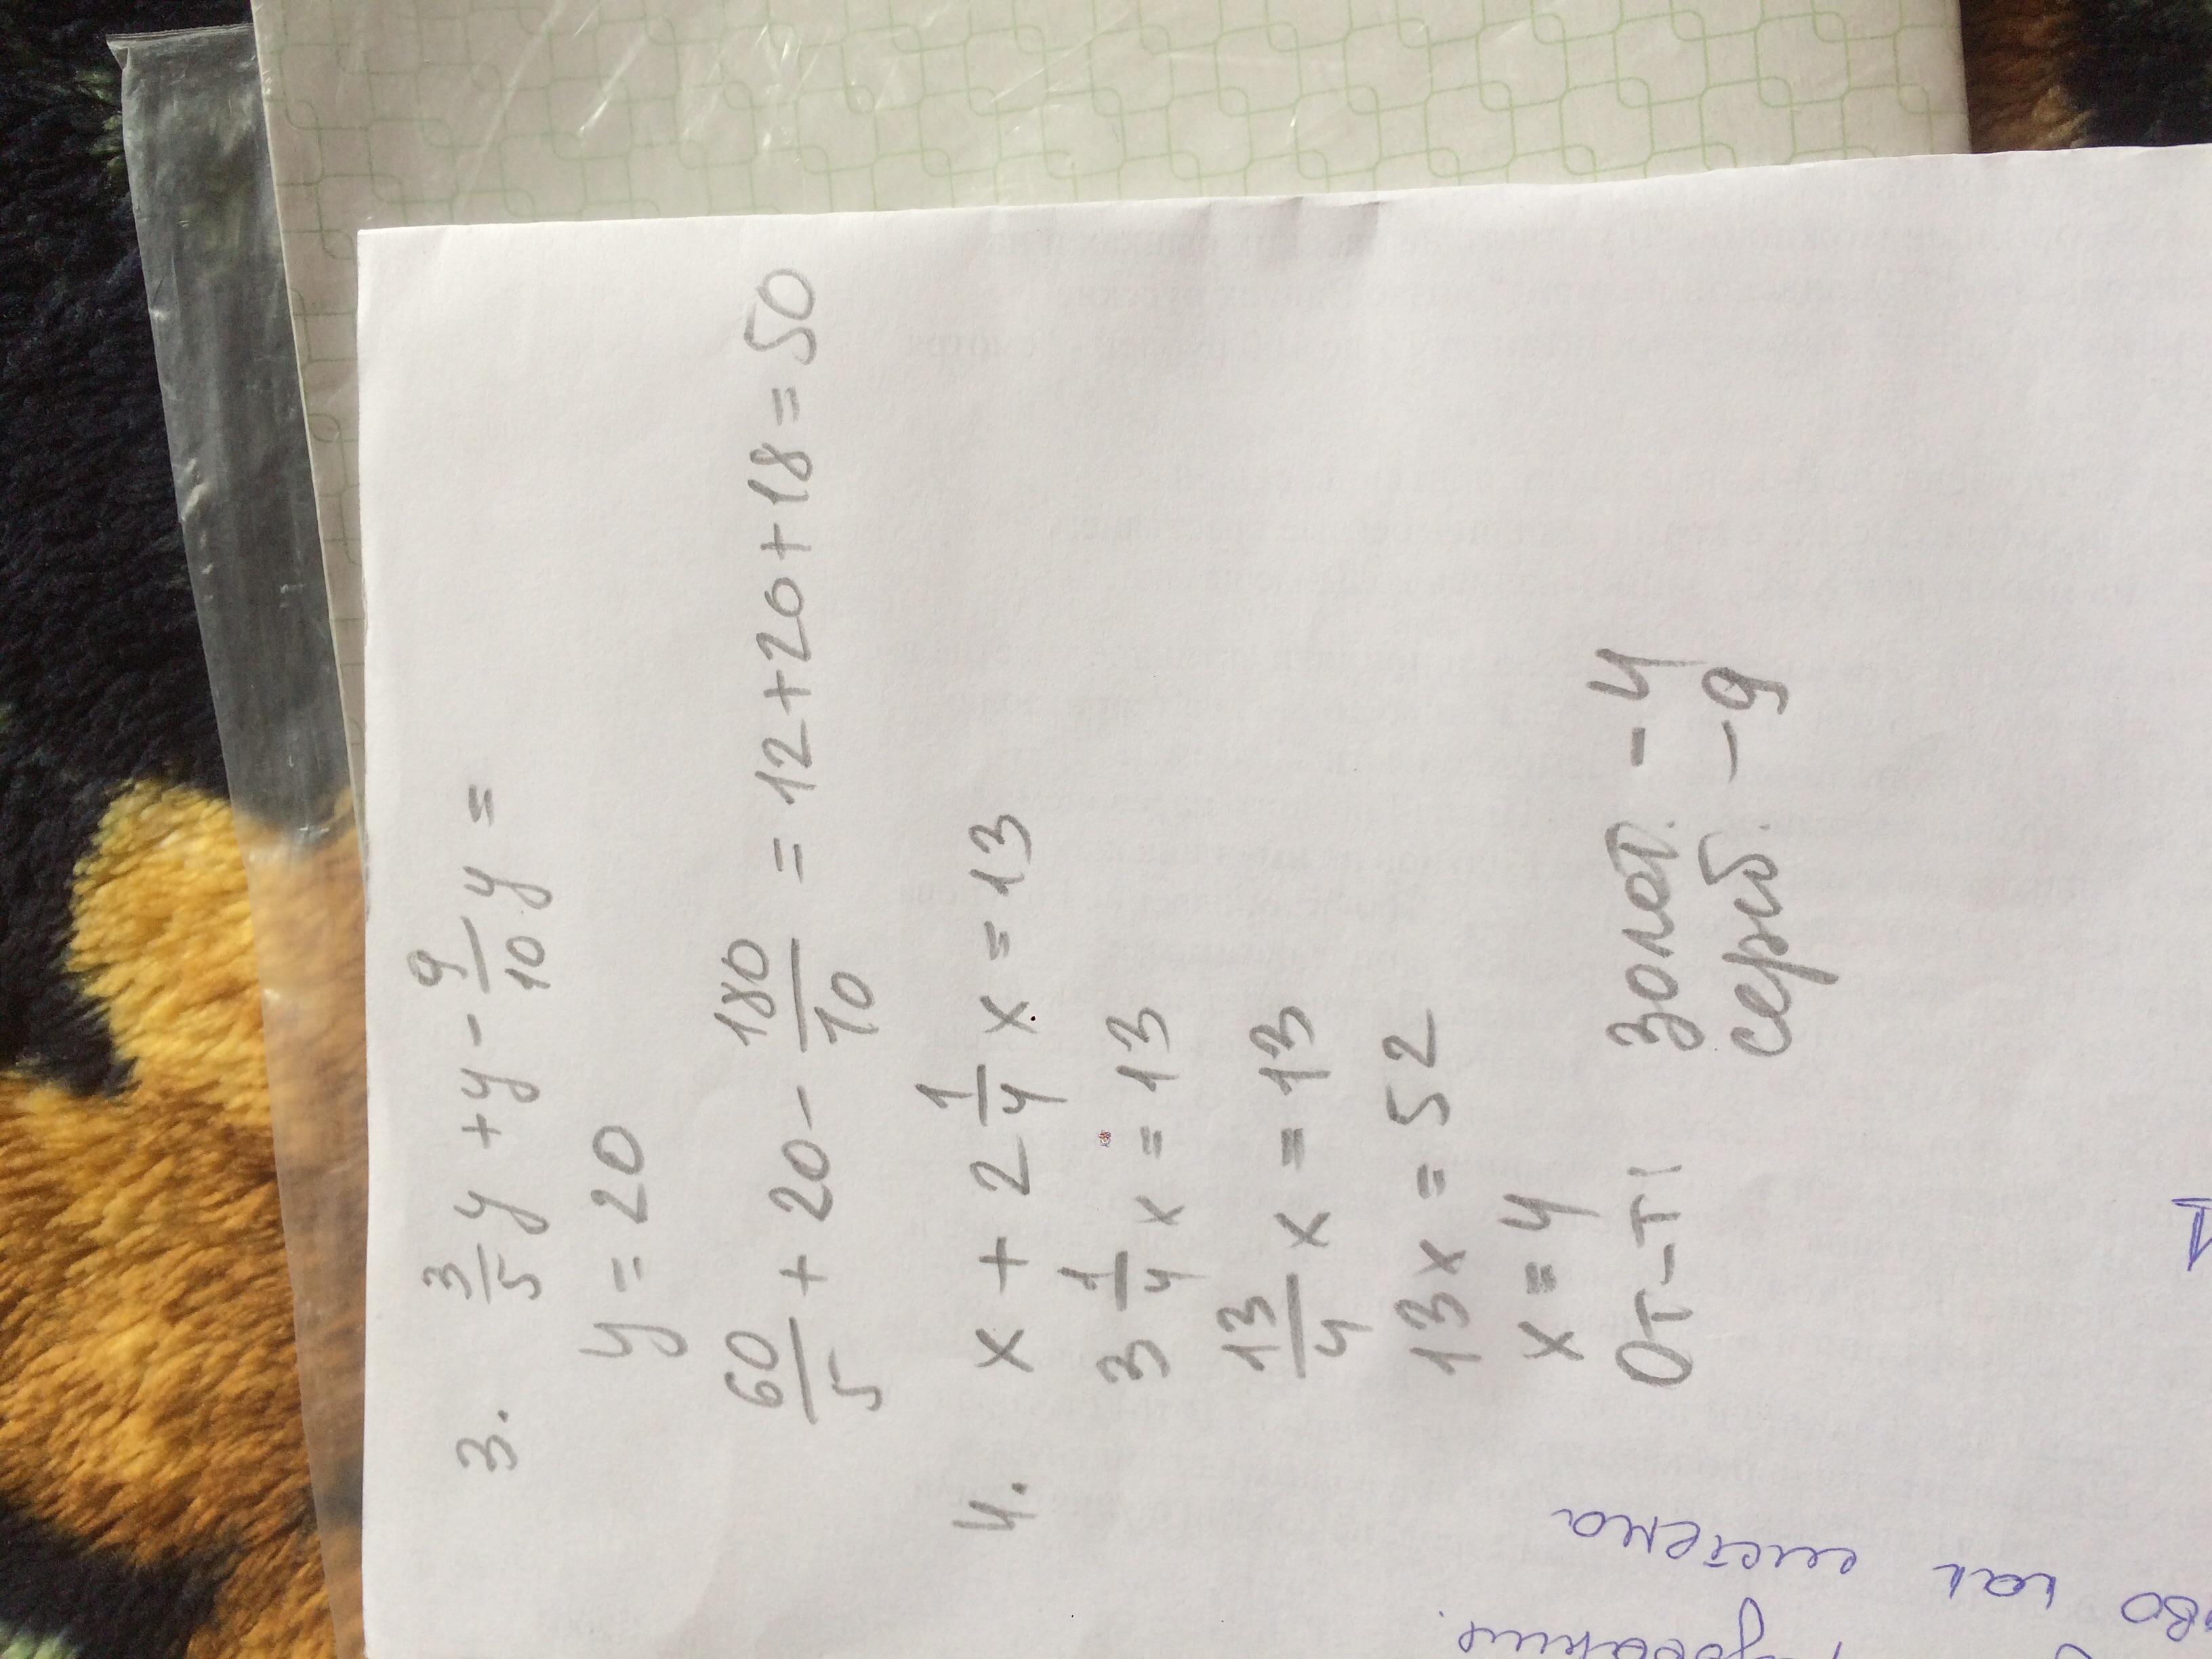 3. 3/5 y + y - 9/10 y =
y = 20
60/5 + 20 - 180/10 = 12+20+18=50
4. x + 2 1/4 x = 13
3 1/4 x = 13
13/4 x = 13
13x = 52
x = 4
От-т! золот. - 4
сереб. - 9